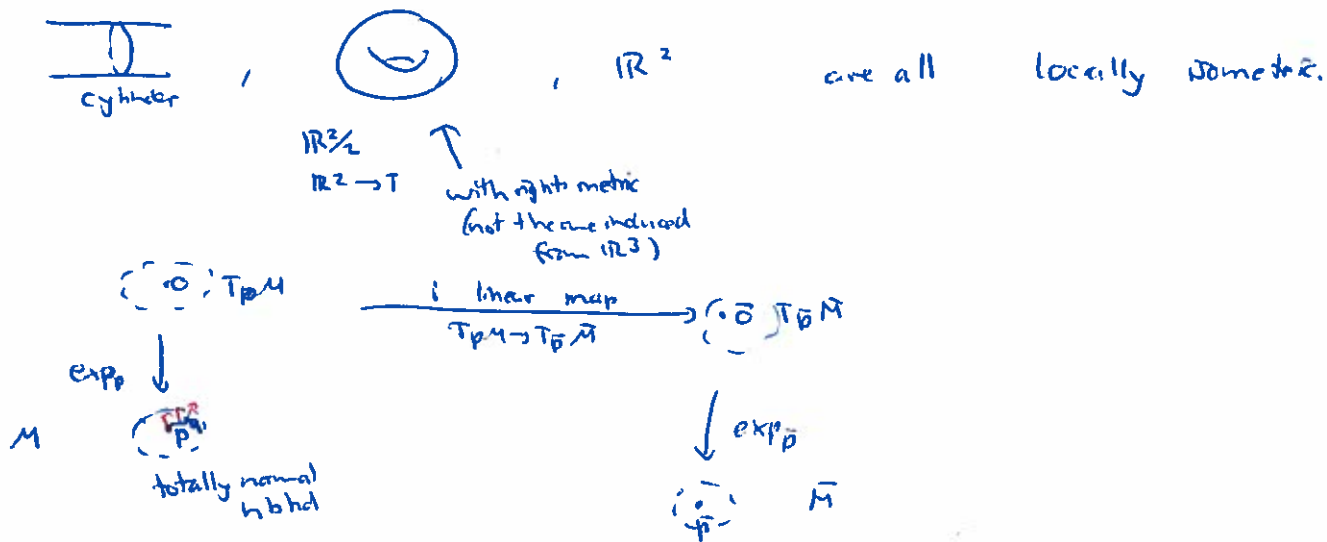 cylinder , , ℝ² are all locally isometric.
ℝ²/2
ℝ² → T
with right metric
(not the one induced
from ℝ³)
0 TₚM
i linear map
TₚM → T_p̄ M̄
0̄ T_p̄ M̄
expₚ
exp_p̄
M p
totally normal
nbhd
p̄ M̄